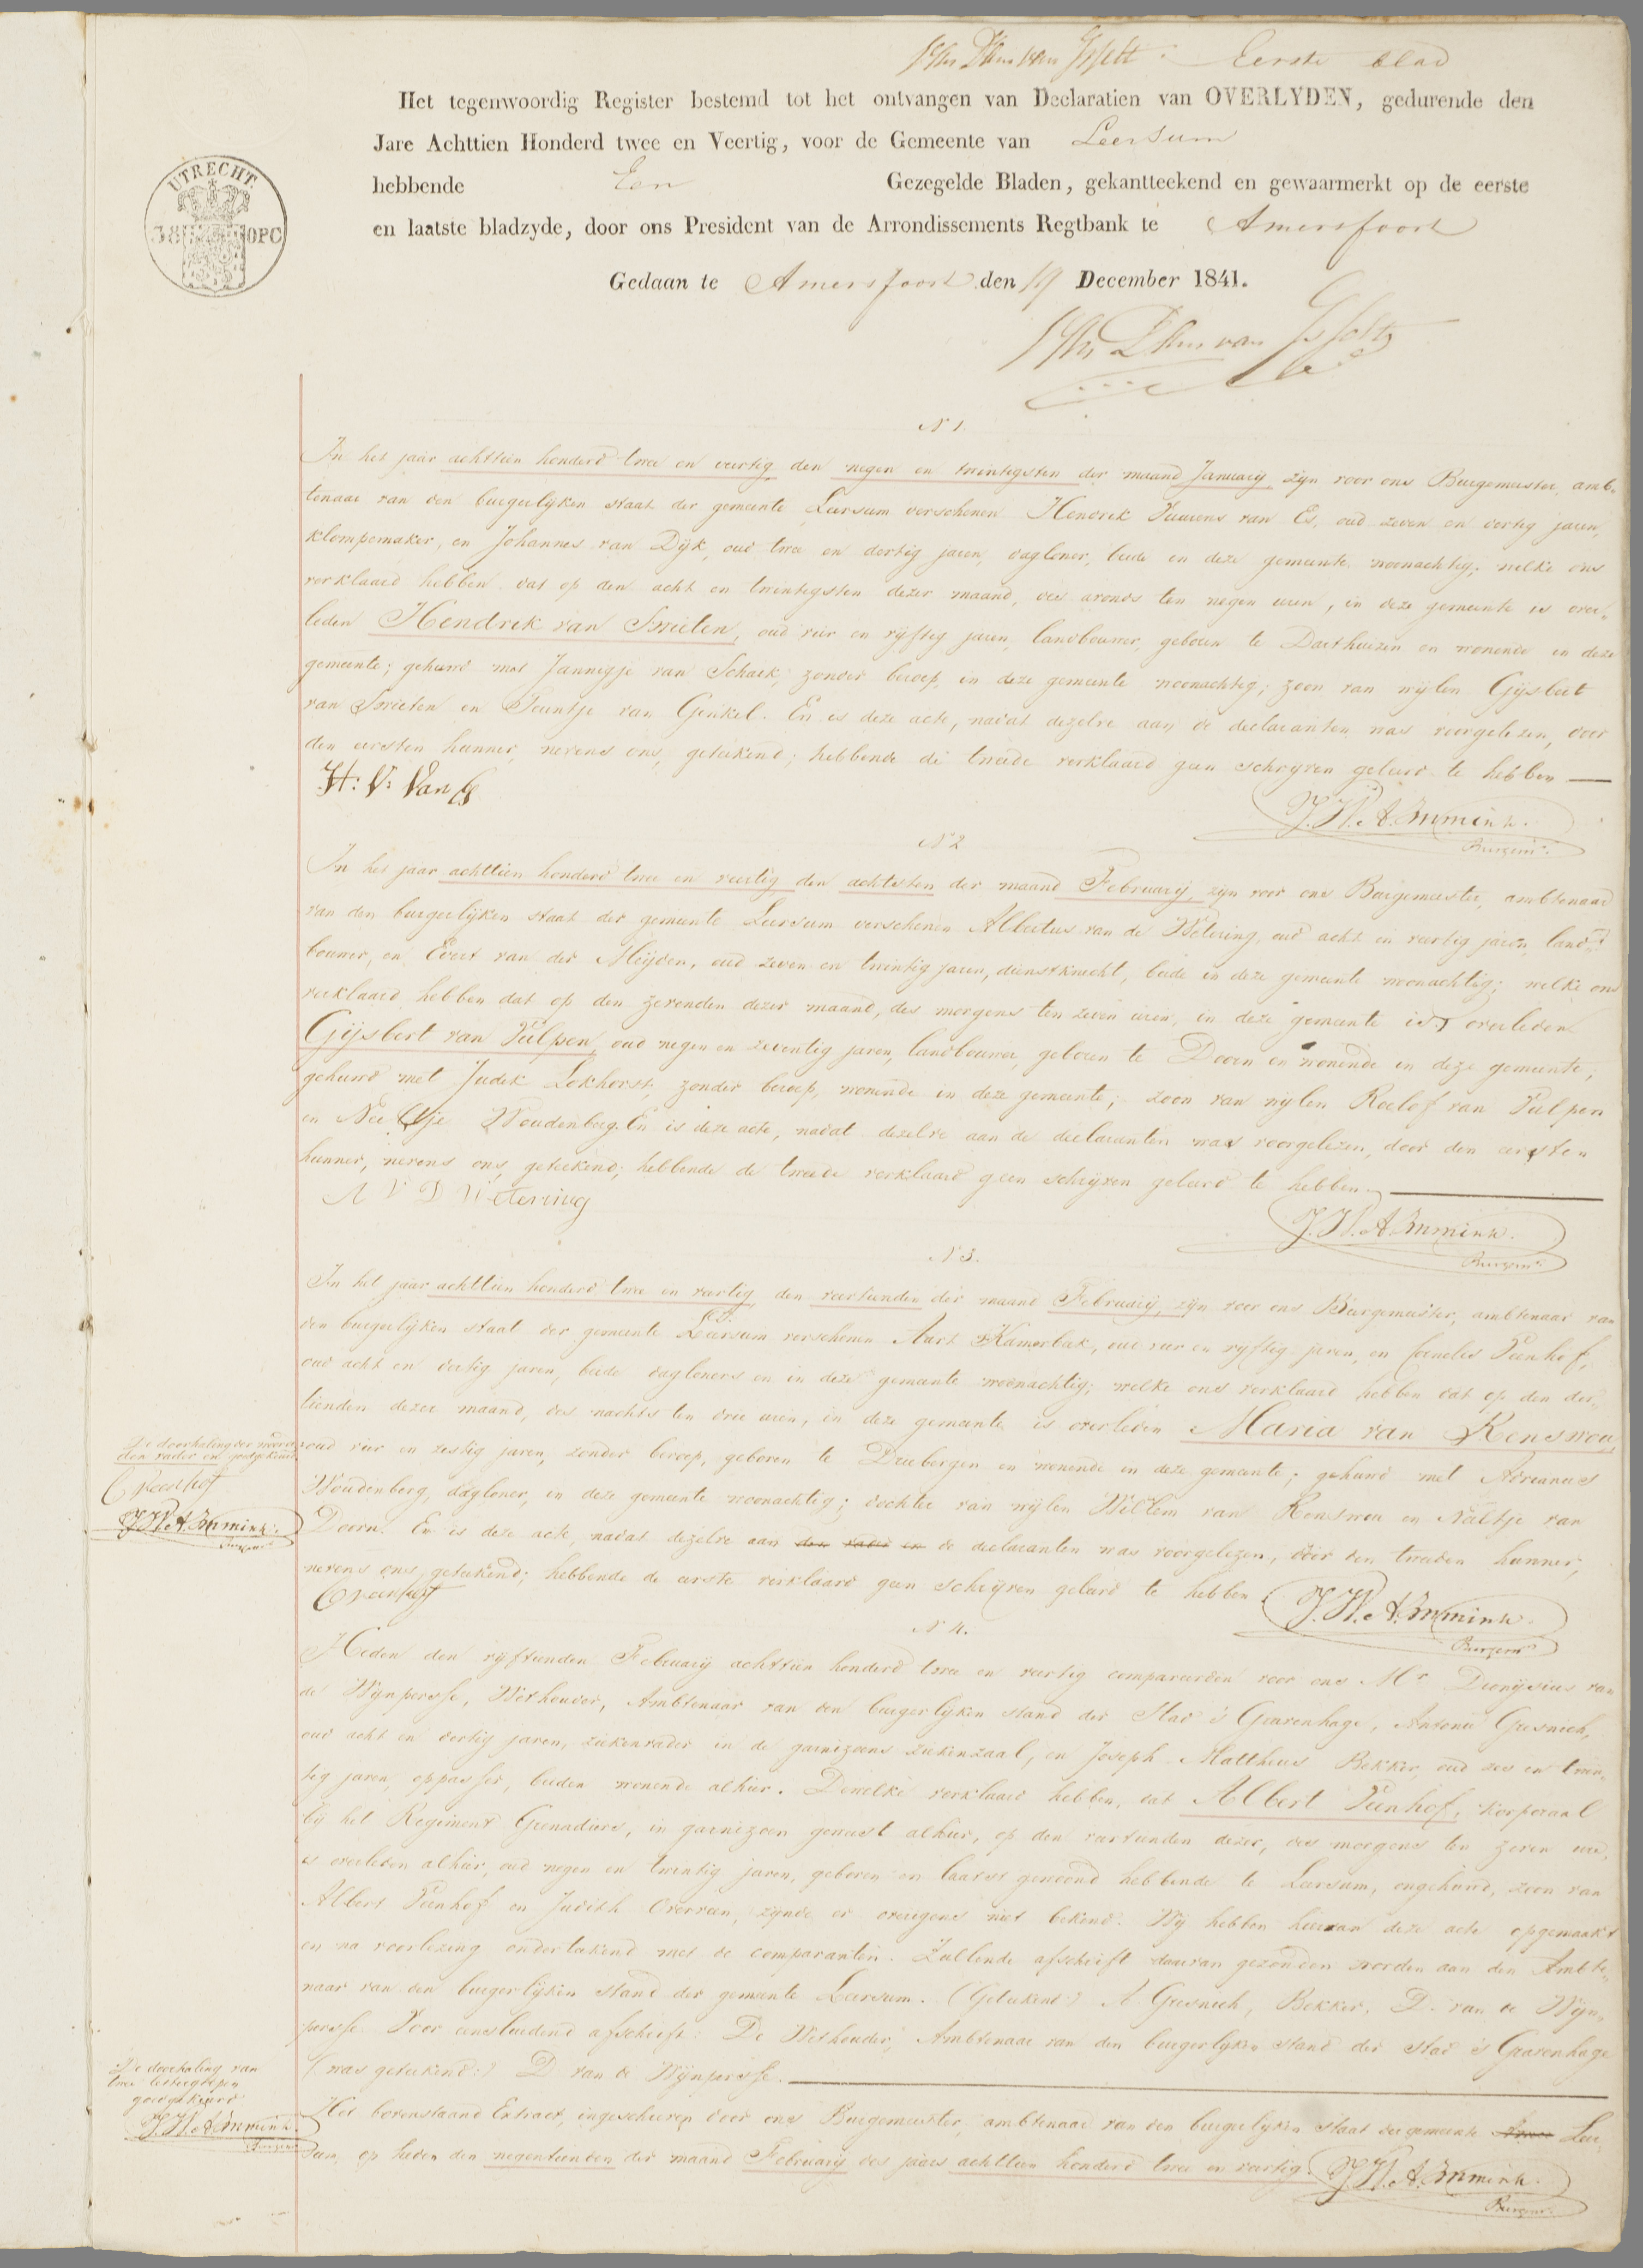 Eerste blad
Het tegenwoordig Register bestemd tot het ontvangen van Declaratien van OVERLYDEN, gedurende den
Jare Achttien Honderd twee en Veertig, voor de Gemeente van Leersum
hebbende Een Gezegelde Bladen, gekantteekend en gewaarmerkt op de eerste
en laatste bladzyde, door ons President van de Arrondissements Regtbank te Amersfoort
Gedaan te Amersfoort den 19 December 1841.
UTRECHT.
38 OPC
N 1.
In het jaar achttien honderd twee en veertig den negen en twintigsten der maand January zijn voor ons Burgemeester, amb-
tenaar van den burgerlijken staat der gemeente Leersum verschenen Hendrik van Es, oud zeven en dertig jaren,
klompemaker, en Johannes van Dijk, oud twee en dertig jaren, daglener, beide in deze gemeente woonachtig; welke ons
verklaard hebben dat op den acht en twintigsten dezer maand, des avonds ten negen uren, in deze gemeente is over-
leden Hendrik van Swieten, oud vier en vyftig jaren, landbouwer, geboren te Darthuizen en wonende in deze
gemeente; gehuwd met Jannigje van Schaik, zonder beroep, in deze gemeente woonachtig; zoon van wijlen Gijsbert
van Swieten en Teuntje van Ginkel. En is deze acte, nadat dezelve aan de declaranten was voorgelezen, door
den eersten hunner, nevens ons, geteekend; hebbende de tweede verklaard geen schryven geleerd te hebben
H: V: Van Es
J. W. A. Immink.
Burgemr.
N 2
In het jaar achttien honderd twee en veertig den achtsten der maand February, zijn voor ons Burgemeester, ambtenaar
van den burgerlijken staat der gemeente Leersum verschenen Albertus van de Wetering, oud acht en veertig jaren, land-
bouwer, en Evert van der Meijden, oud zeven en twintig jaren, dienstknecht, beide in deze gemeente woonachtig; welke ons
verklaard hebben dat op den zevenden dezer maand, des morgens ten zeven uren, in deze gemeente is overleden
Gijsbert van Tulpen, oud negen en zeventig jaren, landbouwer, geboren te Doorn en wonende in deze gemeente;
gehuwd met Judik Lokhorst, zonder beroep, wonende in deze gemeente; zoon van wijlen Roelof van Tulpen
en Neeltje Woudenberg. En is deze acte, nadat dezelve aan de declaranten was voorgelezen, door den eersten
hunner, nevens ons, geteekend; hebbende de tweede verklaard geen schrijven geleerd te hebben.
A V D Wetering
J. W. A. Immink.
Burgemr.
N 3.
In het jaar achttien honderd twee en veertig den veertienden der maand February, zijn voor ons Burgemeester, ambtenaar van
den burgerlijken staat der gemeente Leersum verschenen Aart Kamerbeek, oud vier en vyftig jaren, en Cornelis Veenhof,
oud acht en dertig jaren, beide dagloners en in deze gemeente woonachtig; welke ons verklaard hebben dat op den der-
tienden dezer maand, des nachts ten drie uren, in deze gemeente is overleden Maria van Renswou
oud vier en zestig jaren, zonder beroep, geboren te Driebergen en wonende in deze gemeente; gehuwd met Adrianus
Woudenberg, dagloner, in deze gemeente woonachtig; dochter van wijlen Willem van Renswou en Neeltje van
Doorn. En is deze acte, nadat dezelve aan den vader en de declaranten was voorgelezen, door den tweeden hunner,
nevens ons, geteekend; hebbende de eerste verklaard geen schrijven geleerd te hebben.
C Veenhof
J. W. A. Immink.
Burgemr.
De doorhaling der woorden
den vader en goedgekeurd
C Veenhof
J. W. A. Immink.
Burgemr.
N 4.
Heden den vijftienden February achttien honderd twee en veertig compareerden voor ons Mr. Dionysius van
de Wijnpersse, Wethouder, Ambtenaar van den burgerlijken stand der Stad 's Gravenhage, Antonie Gresnich,
oud acht en dertig jaren, ziekenvader in de garnizoens ziekenzaal, en Joseph Mattheus Bekker, oud zes en twin-
tig jaren, oppasser, beiden wonende alhier. Dewelke verklaard hebben, dat Albert Veenhof, korporaal
bij het Regiment Grenadiers, in garnizoen geweest alhier, op den veertienden dezer, des morgens ten zeven ure,
is overleden alhier, oud negen en twintig jaren, geboren en laatst gewoond hebbende te Leersum, ongehuwd, zoon van
Albert Veenhof en Judith Overveen, zijnde er overigens niet bekend. Wij hebben hiervan deze acte opgemaakt
en na voorlezing onderteekend met de comparanten. Zullende afschrift daarvan gezonden worden aan den Ambte-
naar van den burgerlijken stand der gemeente Leersum. (Geteekend) A. Gresnich, Bekker, D. van de Wijn-
persse. Voor eensluidend afschrift: De Wethouder, Ambtenaar van den burgerlijken stand der stad 's Gravenhage
(was geteekend:) D. van de Wijnpersse.
Het bovenstaand Extract, ingeschreven door ons Burgemeester, ambtenaar van den burgerlijken staat der gemeente Leer-
sum, op heden den negentienden der maand February des jaars achttien honderd twee en veertig.
J. W. A. Immink.
Burgemr.
De doorhaling van
twee lettergrepen
goedgekeurd
J. W. A. Immink.
Burgemr.